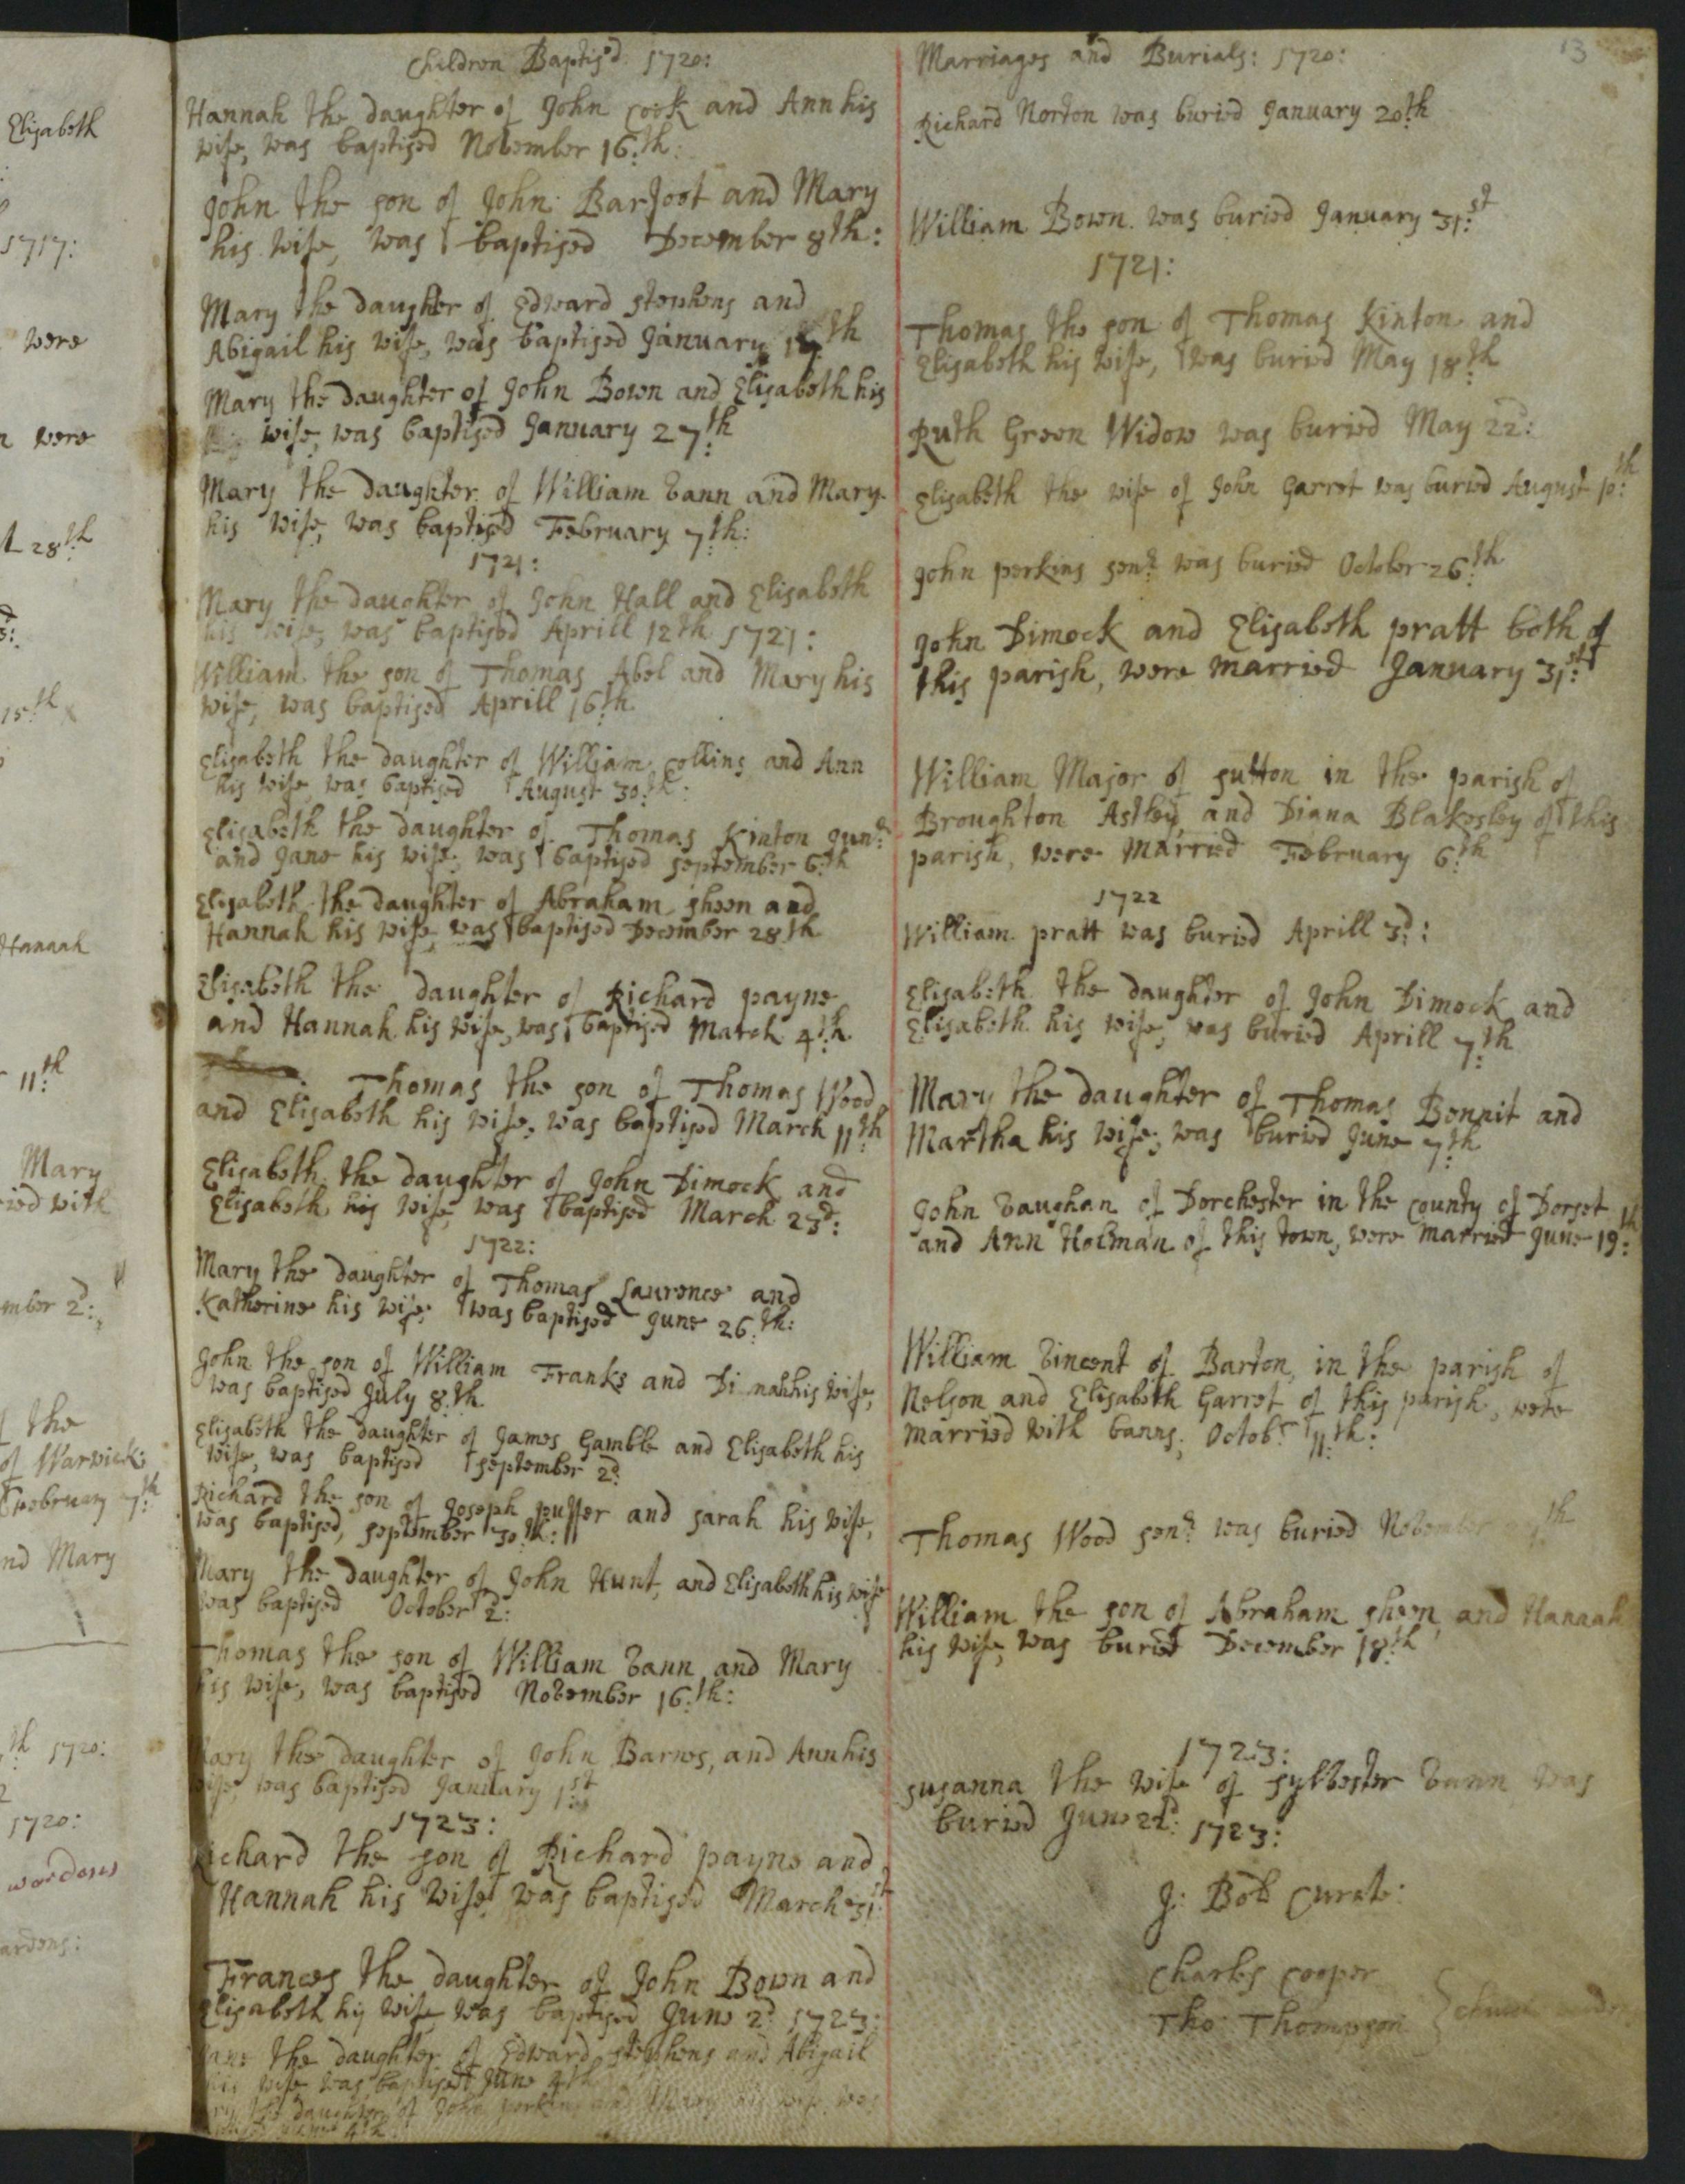 Elisabeth
1717:
were
were
28th
15th
Hannah
11th
Mary
with
mber 2d:
the
of Warwick:
February 7th
nd Mary
th 1720:
1720:
wardens
ardens:
Children Baptis'd 1720:
Hannah the daughter of John Cook and Ann his
wife, was baptised November 16th:
John the son of John Barfoot and Mary
his wife, was baptised December 8th:
Mary the daughter of Edward Stephens and
Abigail his wife, was baptised January th
Mary the daughter of John Bown and Elisabeth his
wife, was baptised January 27th
Mary the daughter of William Vann and Mary
his wife, was baptised February 7th:
1721:
Mary the daughter of John Hall and Elisabeth
his wife, was baptised Aprill 12th 1721:
William the son of Thomas Abel and Mary his
wife, was baptised Aprill 16th
Elisabeth the daughter of William Collins and Ann
his wife, was baptised August 30th:
Elisabeth the daughter of Thomas Kinton Junr:
and Jane his wife, was baptised September 6th
Elisabeth the daughter of Abraham Sheen and
Hannah his wife, was baptised December 28th
Elisabeth the daughter of Richard payne
and Hannah his wife, was baptised March 4th
Thomas the son of Thomas Wood
and Elisabeth his wife, was baptised March 11th
Elisabeth the daughter of John Dimock and
Elisabeth his wife, was baptised March 23d:
1722:
Mary the daughter of Thomas Laurence and
Katherine his wife, was baptised June 26th:
John the son of William Franks and Dinah his wife,
was baptised July 8th
Elisabeth the daughter of James Gamble and Elisabeth his
wife, was baptised September 2d
Richard the son of Joseph puffer and Sarah his wife,
was baptised, September 30th:
Mary the daughter of John Hunt, and Elisabeth his wife
was baptised October 2:
Thomas the son of William Vann and Mary
his wife, was baptised November 16th:
Mary the daughter of John Barns, and Ann his
wife, was baptised January 1st
1723:
Richard the son of Richard payne and
Hannah his wife, was baptised March 31st
Frances the daughter of John Bown and
Elisabeth his wife, was baptised June 2d 1723:
Jane the daughter of Edward Stephens and Abigail
his wife was baptised June 4th
the daughter of John perkins and Mary his wife was
4th
Marriages and Burials: 1720:
13
Richard Norton was buried January 20th
William Bown was buried January 31st
1721:
Thomas the son of Thomas Kinton and
Elisabeth his wife, was buried May 18th
Ruth Green Widow was buried May 22:
Elisabeth the wife of John Garret was buried August 10th:
John perkins senr: was buried October 26th
John Dimock and Elisabeth pratt both of
this parish, were married January 31st
William Major of Sutton in the parish of
Broughton Astley, and Diana Blakesley of this
parish, were Married February 6th
1722
William pratt was buried Aprill 3d:
Elisabeth the daughter of John Dimock and
Elisabeth his wife, was buried Aprill 7th
Mary the daughter of Thomas Bennit and
Martha his wife, was buried June 7th
John Vaughan of Dorchester in the County of Dorset
and Ann Holman of this town, were married June 19th:
William Vincent of Barton, in the parish of
Nelson and Elisabeth Garret of this parish, were
married with banns, Octobr 11th:
Thomas Wood senr was buried November th
William the son of Abraham Sheen, and Hannah
his wife, was buried December 18th
1723:
Susanna the wife of Sylvester Vann was
buried June 22d: 1723:
J: Bob Curate:
Charles Cooper
Tho: Thompson